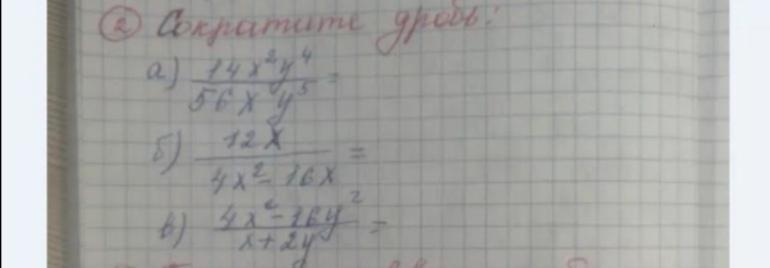 ② Сократите дробь:
а) 14x²y⁴ / 56x y⁵ =
б) 12x / 4x² - 16x =
в) 4x² - 16y² / x + 2y =